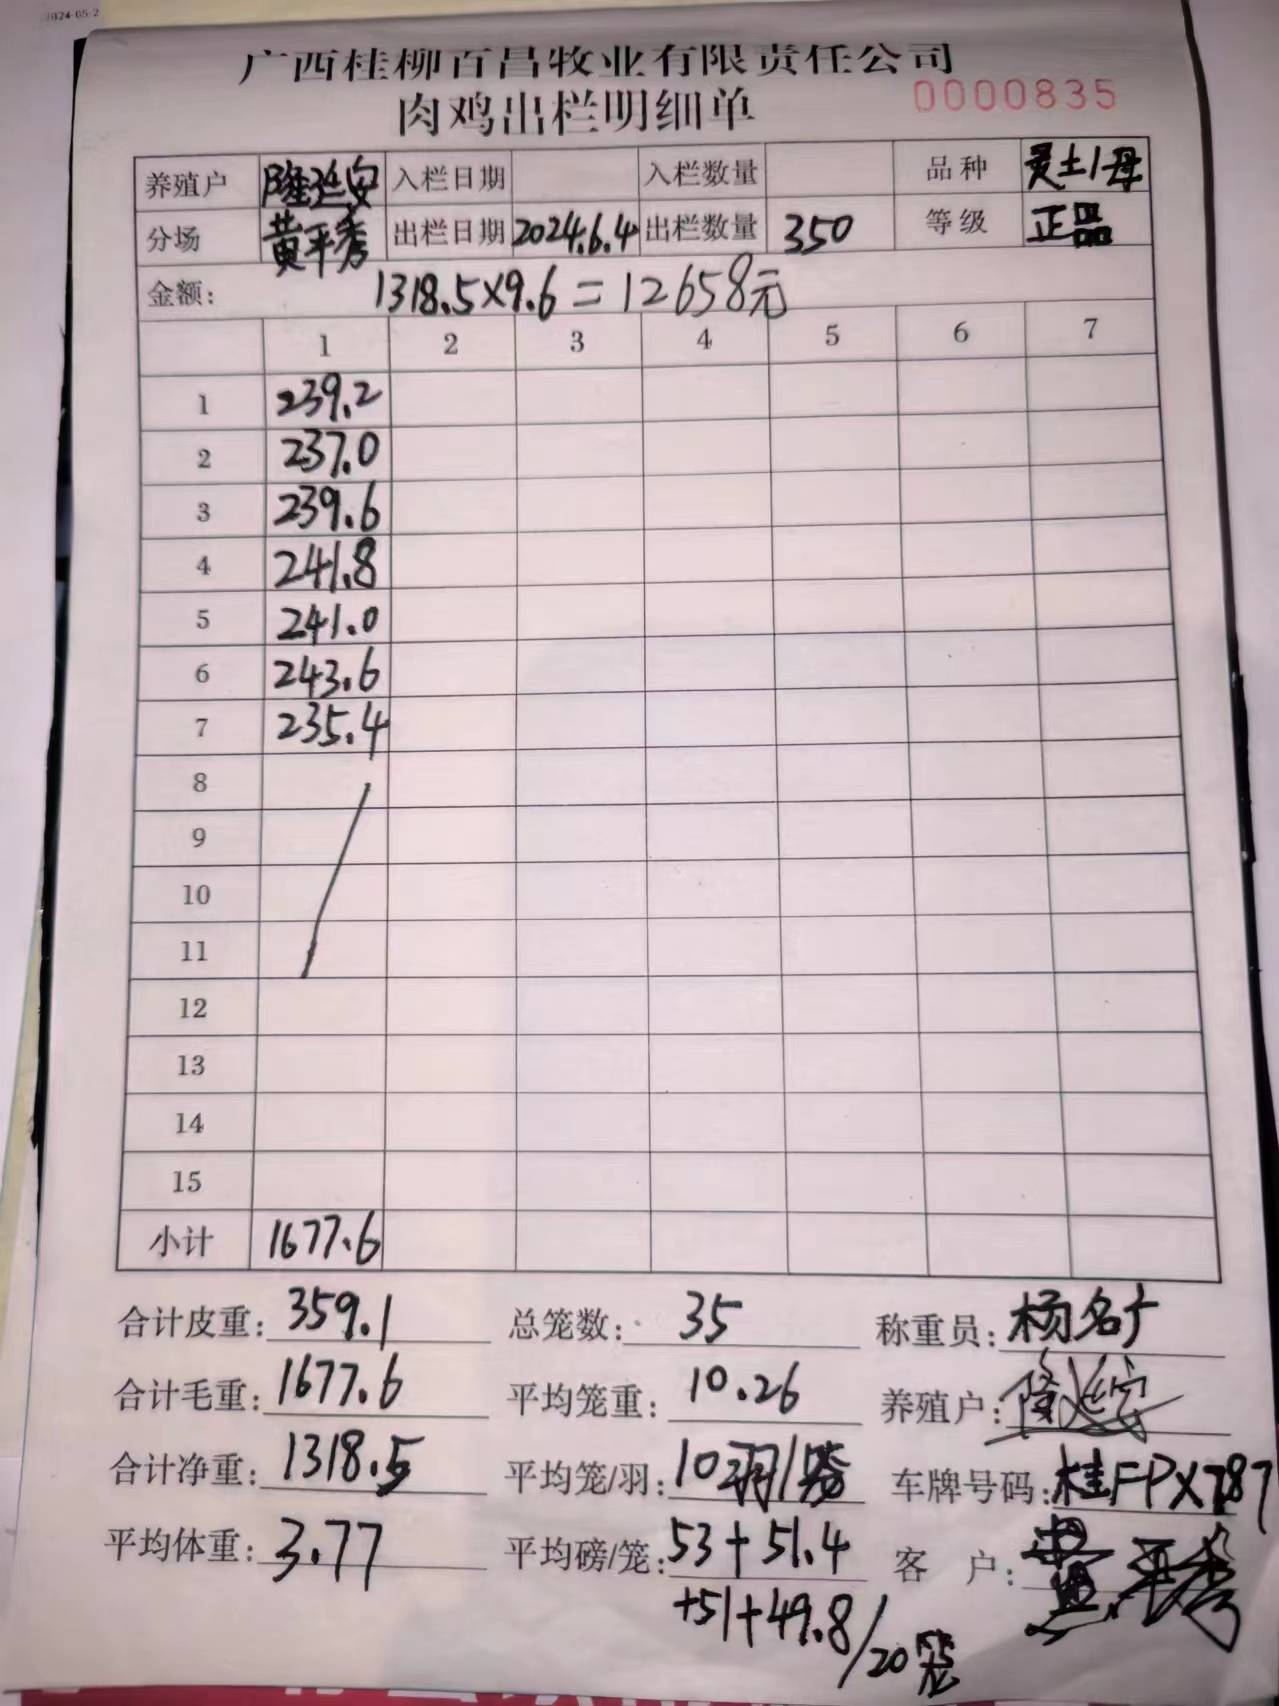 2024-05-2
广西桂柳百昌牧业有限责任公司
肉鸡出栏明细单 0000835
养殖户 隆延安 入栏日期 入栏数量 品种 灵土1母
分场 黄平秀 出栏日期 2024.6.4 出栏数量 350 等级 正品
金额: 1318.5×9.6=12658元
1 2 3 4 5 6 7
1 239.2
2 237.0
3 239.6
4 241.8
5 241.0
6 243.6
7 235.4
8
9
10
11
12
13
14
15
小计 1677.6
合计皮重: 359.1 总笼数: 35 称重员: 杨名广
合计毛重: 1677.6 平均笼重: 10.26 养殖户: 隆延安
合计净重: 1318.5 平均笼/羽: 10羽/笼 车牌号码: 桂FPX787
平均体重: 3.77 平均磅/笼: 53+51.4 客户: 黄平秀
+51+49.8/20笼